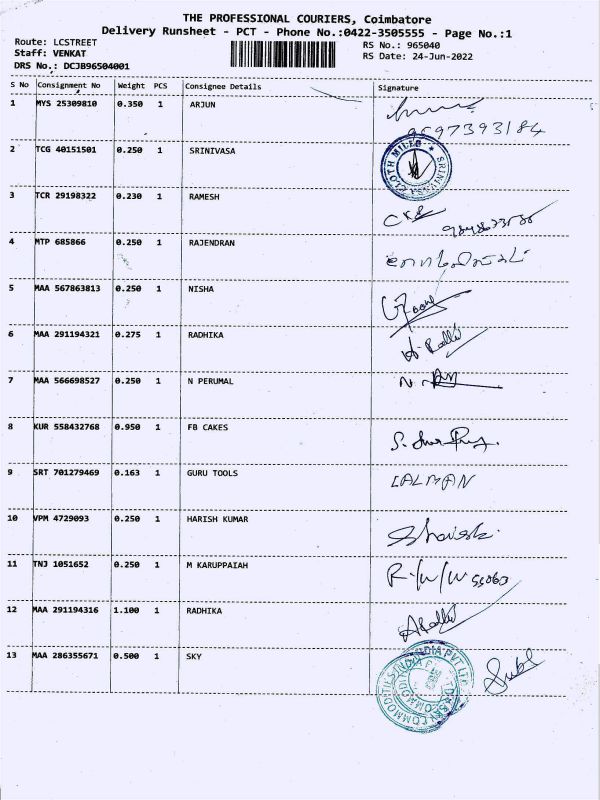 THE PROFESSIONAL COURIERS, Coimbatore
Delivery Runsheet - PCT - Phone No.:0422-3505555 - Page No.:1
Route: LCSTREET
Staff: VENKAT
DRS No.: DCJB96504001
RS No.: 965040
RS Date: 24-Jun-2022
S No Consignment No Weight PCS Consignee Details Signature
1 MYS 25309810 0.350 1 ARJUN
2 TCG 40151501 0.250 1 SRINIVASA CLOTH MILLS * SRINIVASA
3 TCR 29198322 0.230 1 RAMESH
4 MTP 685866 0.250 1 RAJENDRAN
5 MAA 567863813 0.250 1 NISHA
6 MAA 291194321 0.275 1 RADHIKA
7 MAA 566698527 0.250 1 N PERUMAL
8 KUR 558432768 0.950 1 FB CAKES
9 SRT 701279469 0.163 1 GURU TOOLS LALMAN
10 VPM 4729093 0.250 1 HARISH KUMAR
11 TNJ 1051652 0.250 1 M KARUPPAIAH
12 MAA 291194316 1.100 1 RADHIKA
13 MAA 286355671 0.500 1 SKY